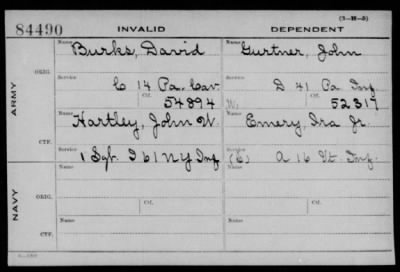 (3-H-5)
84490 INVALID DEPENDENT
Name Burks, David Name Gurtner, John
ORIG.
Service C 14 Pa. Cav. Service D 41 Pa Inf.
Ctf. 54894 W. Ctf. 52317
ARMY
Name Hartley, John W. Name Emery, Ira Jr.
CTF.
Service 1 Sgt. I 61 NY Inf Service (C) A 16 Vt. Inf.
Name Name
ORIG.
NAVY
Service Ctf. Service Ctf.
Name Name
CTF.
Service Service